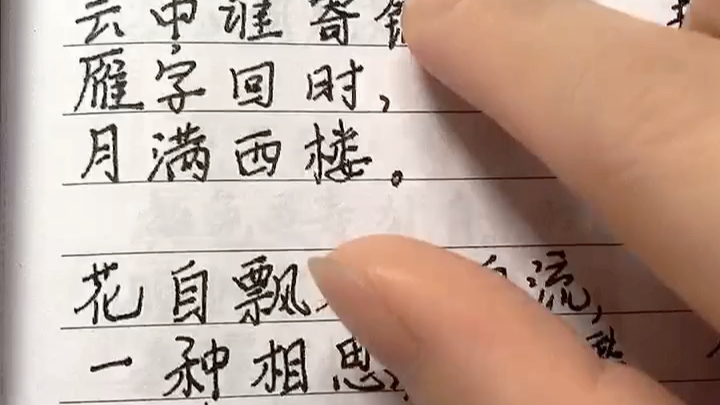 云中谁寄锦
雁字回时，
月满西楼。
花自飘 自流，
一种相思，